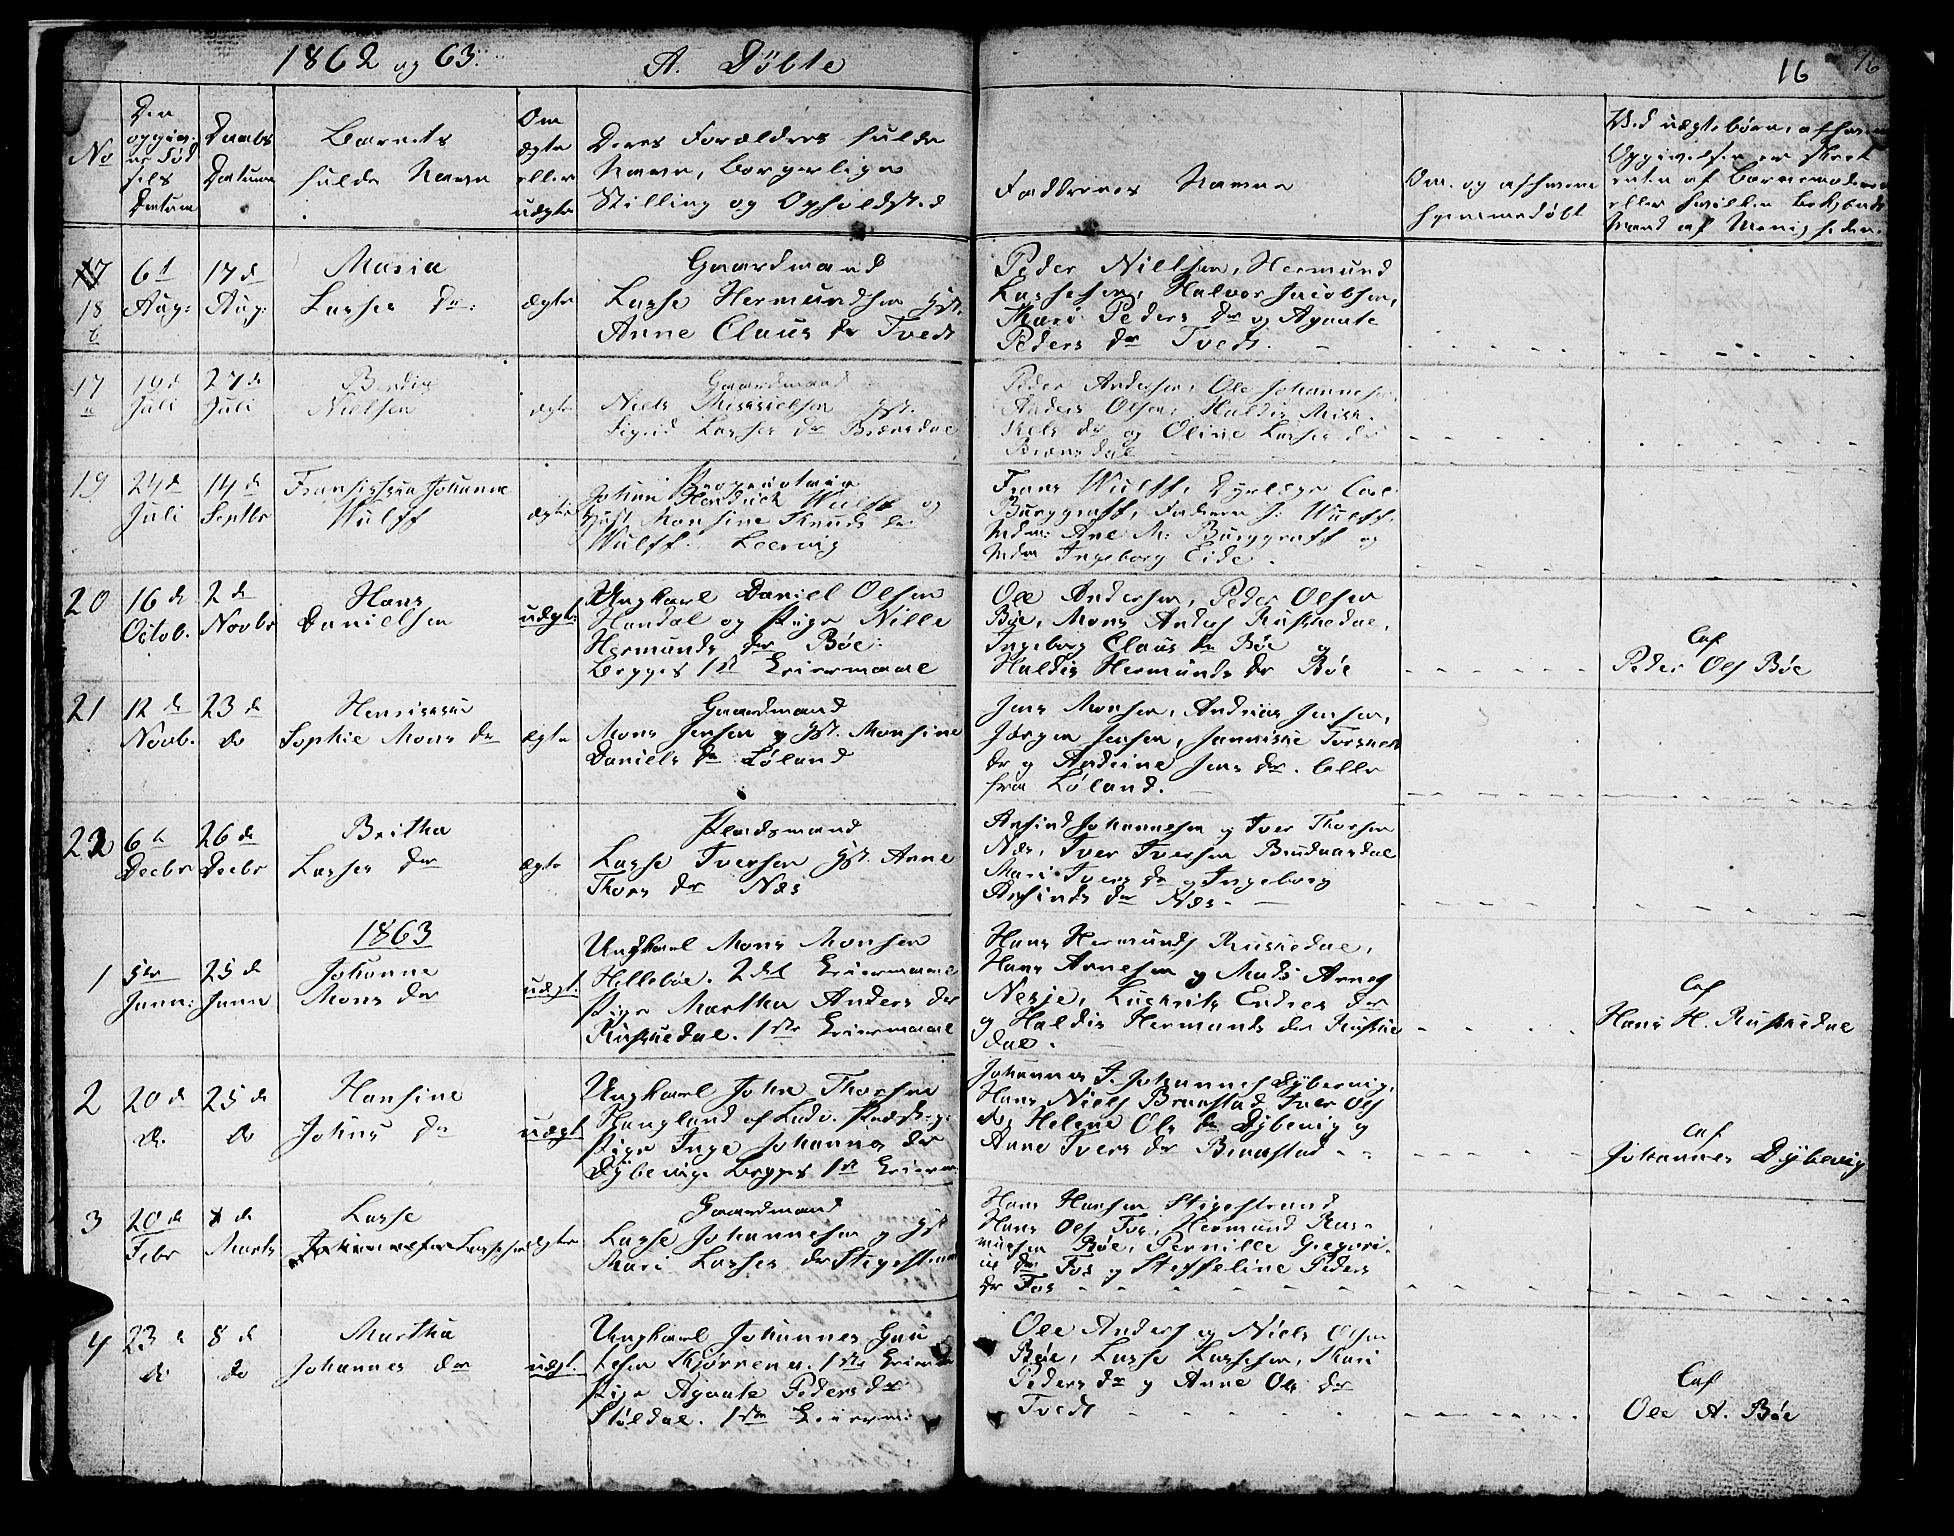 1862 og 63. A. Döbte 16 16
No
Den opgivne Fødsels Datum
Daabs Datum
Barnets fulde Navn
Om ægte eller uægte
Deres Forældres fulde Navn, borgerlige Stilling og Opholdsted
Faddernes Navne
Om og af hvem hjemmedøbt
Ved uægte børn, af hvem Opgivelsen er skeet enten af Barnemoderen eller hvilken bekjendt Mand af Menigheden.
17 18 b
6t Aug:
17 d Aug:
Maria
Lasses dr:
ægte
Gaardmand
Lasse Hermundsen Hst.
Anne Claus dr Tvedt
Peder Nielsen, Hermund
Lassesen, Halvor Jacobsen,
Mari Peders dr og Agaate
Peders dr Tvedt.
17 a
19 d Juli
27 d Juli
Nielsen
ægte
Gaardmand
Niels Mikkielsen Hst.
Sigrid Lasses dr Brænsdal
Peder Andersen, Ole Johannesen
Anders Olsen, Haldis Mik-
kels dr og Oline Lasses dr
Brænsdal
19
24 d Juli
14 d Septbr
Fransisska Johanne
Wulff
ægte
Proprietair
Johan Hendrick Wulff og
Hust Monsine Knuds dr:
Wulff. Leervig
Frans Wulff, Dyrlæge Carl
Burggraff, Faderen J: Wulff,
Mdm: Ane M: Burggraff og
Mdm Ingeborg Eide.
20
16 d Octob.
2 d Novbr
Hans
Danielsen
uægt:
Ungkarl Daniel Olsen
Handal og Pige Nille
Hermunds dr Bøe:
Begges 1st Leiermaal
Ole Andersen, Peder Olsen
Bøe, Mons Anders Russkedal,
Ingeborg Claus dr Bøe og
Haldis Hermunds dr Bøe
af
Peder Ols Bøe
21
12 d Novb.
23 d do
Henrikka
Sophie Mons dr
ægte
Gaardmand
Mons Jensen og Hst. Monsine
Daniels dr Løland
Jens Monsen, Andreas Jensen,
Jørgen Jensen, Jannikke Torsneth
dr og Andrine Jens dr. alle
fra Løland.
22
6 t Decbr
26 d Decbr
Britha
Lasses dr
ægte
Pladsmand
Lasse Iversen Hst. Anne
Thors dr Næs
Ansind Johannesen og Iver Thorsen
Næs, Iver Iversen
Mari Ivers dr og Ingeborg
Ansinds dr Næs
1863
1
5te Janu:
25 d Janu
Johanne
Mons dr
uægt.
Ungkarl Mons Monsen
Hillebøe. 2det Leiermaal
Pige Martha Anders dr
Russkedal. 1ste Leiermaal
Hans Hermunds Russkedal,
Hans Arnesen og Mads Arnes
Nesje, Endres dr
og Haldis Hermunds dr Russke
dal.
af
Hans H. Russkedal
2
20 d d.
25 d do
Hansine
Johns dr
uægt.
Ungkarl John Thorsen
Haugland af
Pige Inge Johannes dr
Dybevig Begges 1st Leierm
Johannes J. Johannes Dybevig,
Hans Niels Braastad Iver Ols
do, Helene Ols dr Dybevig og
Anne Ivers dr Braastad
af
Johannes Dybevig
3
20 d Febr
1 d Marts
Lasse
Johannesen Lassesen
ægte
Gaardmand
Lasse Johannesen og Hst
Mari Lasses dr Stegestrand
Hans Hansen Stegestrand
Hans Ols Fos, Hermund Ras-
musen Bøe, Pernille Gregori-
us dr Fos og Steffeline Peders
dr Fos
4
23 d do
8 d do
Martha
Johannes dr
uægt.
Ungkarl Johannes Gau
lesen Skjørnen. 1ste Leierm
Pige Agaate Peders dr
Støldal. 1ste Leierm:
Ole Anders og Niels Olsen
Bøe, Lasse Lassesen, Mari
Peders dr og Anne Ols dr
Tvedt
af
Ole A. Bøe